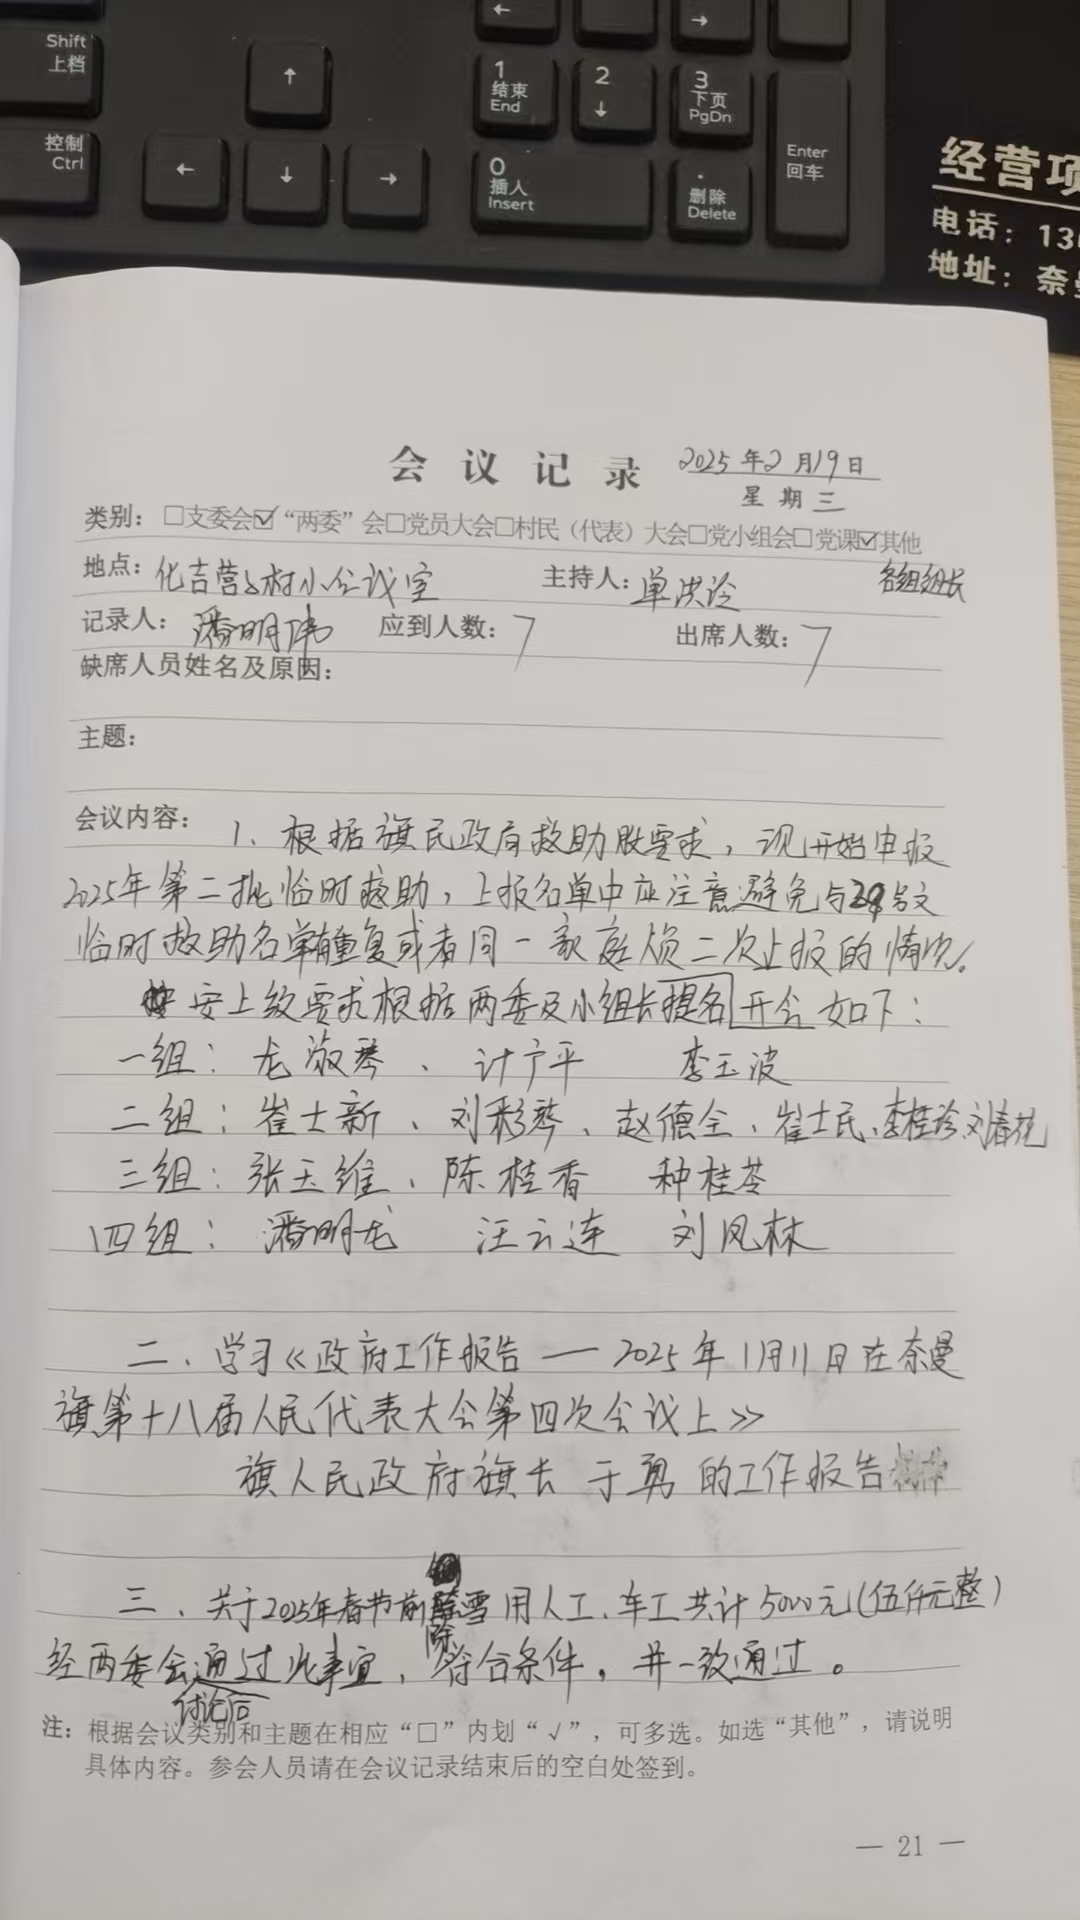 Shift
上档
↑
←
→
1
结束
End
2
↓
3
下页
PgDn
控制
Ctrl
←
↓
→
0
插入
Insert
.
删除
Delete
Enter
回车
经营项
电话：13
地址：奈
会议记录 2025年2月19日
星期三
类别：□支委会☑“两委”会□党员大会□村民（代表）大会□党小组会□党课☑其他
地点：化吉营子村小会议室 主持人：单洪 各组组长
记录人：潘明伟 应到人数：7 出席人数：7
缺席人员姓名及原因：
主题：
会议内容：1、根据旗民政局救助股要求，现开始申报
2025年第二批临时救助，上报名单中应注意避免与号文
临时救助名单有重复或者同一家庭烦二次上报的情况。
安上级要求根据两委及小组长提名开会如下：
一组：龙淑琴、计广平 李玉波
二组：崔士新、刘彩琴、赵德全、崔士民、李桂珍、刘春花
三组：张玉维、陈桂香 种桂苓
四组：潘明龙 汪云连 刘凤林
二、学习《政府工作报告——2025年1月11日在奈曼
旗第十八届人民代表大会第四次会议上》
旗人民政府旗长 于勇 的工作报告
三、关于2025年春节前除雪用人工、车工共计5000元(伍仟元整)
经两委会讨论后通过此事宜，符合条件，并一致通过。
注：根据会议类别和主题在相应“□”内划“√”，可多选。如选“其他”，请说明
具体内容。参会人员请在会议记录结束后的空白处签到。
— 21 —